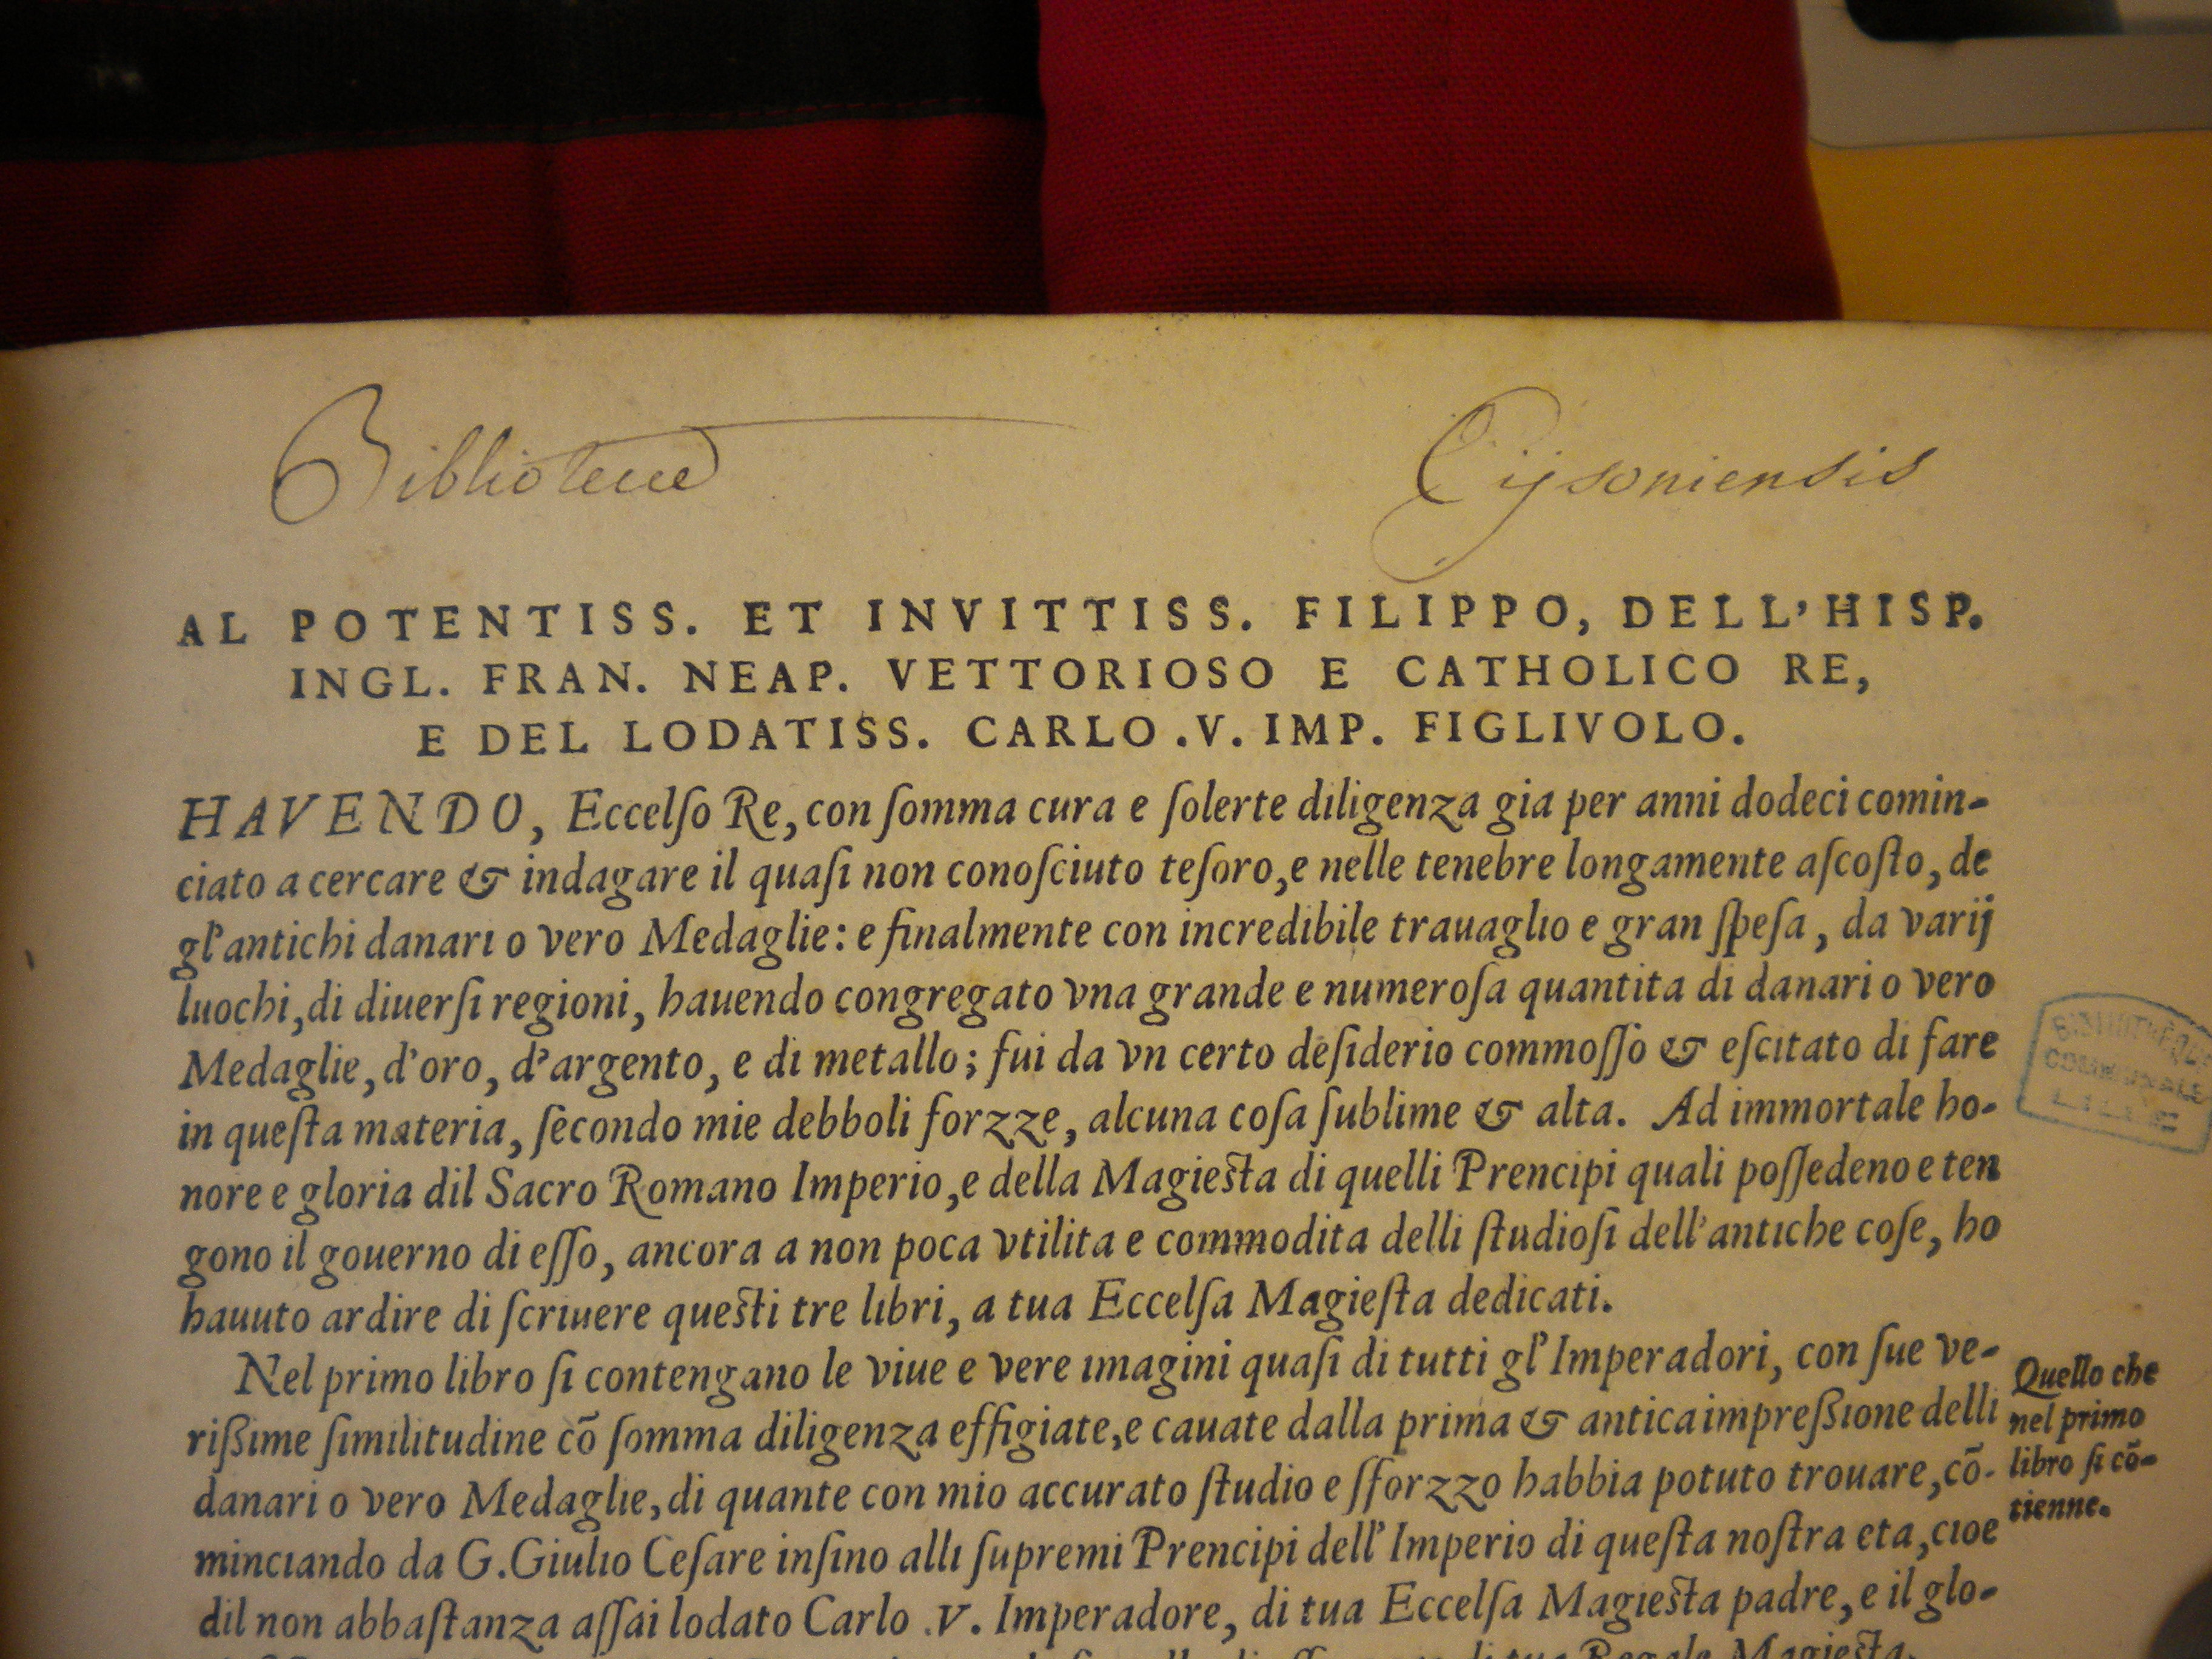 Bibliotecæ Cijsoniensis
AL POTENTISS. ET INVITTISS. FILIPPO, DELL'HISP.
INGL. FRAN. NEAP. VETTORIOSO E CATHOLICO RE,
E DEL LODATISS. CARLO .V. IMP. FIGLIVOLO.
HAVENDO, Eccelſo Re, con ſomma cura e ſolerte diligenza gia per anni dodeci comin-
ciato a cercare & indagare il quaſi non conoſciuto teſoro, e nelle tenebre longamente aſcoſto, de
gl'antichi danari o vero Medaglie: e finalmente con incredibile trauaglio e gran ſpeſa, da varij
luochi, di diuerſi regioni, hauendo congregato vna grande e numeroſa quantita di danari o vero
Medaglie, d'oro, d'argento, e di metallo; fui da vn certo deſiderio commoſſo & eſcitato di fare
in queſta materia, ſecondo mie debboli forzze, alcuna coſa ſublime & alta. Ad immortale ho-
nore e gloria dil Sacro Romano Imperio, e della Magieſta di quelli Prencipi quali poſſedeno e ten
gono il gouerno di eſſo, ancora a non poca vtilita e commodita delli ſtudioſi dell'antiche coſe, ho
hauuto ardire di ſcriuere queſti tre libri, a tua Eccelſa Magieſta dedicati.
Nel primo libro ſi contengano le viue e vere imagini quaſi di tutti gl'Imperadori, con ſue ve-
riſsime ſimilitudine cõ ſomma diligenza effigiate, e cauate dalla prima & antica impreſsione delli
danari o vero Medaglie, di quante con mio accurato ſtudio e ſforzzo habbia potuto trouare, cõ-
minciando da G. Giulio Ceſare inſino alli ſupremi Prencipi dell'Imperio di queſta noſtra eta, cioe
dil non abbaſtanza aſſai lodato Carlo .V. Imperadore, di tua Eccelſa Magieſta padre, e il glo-
di tua Regale Magieſta.
Quello che
nel primo
libro ſi cõ-
tienne.
BIBLIOTHÈQUE
COMMUNALE
LILLE